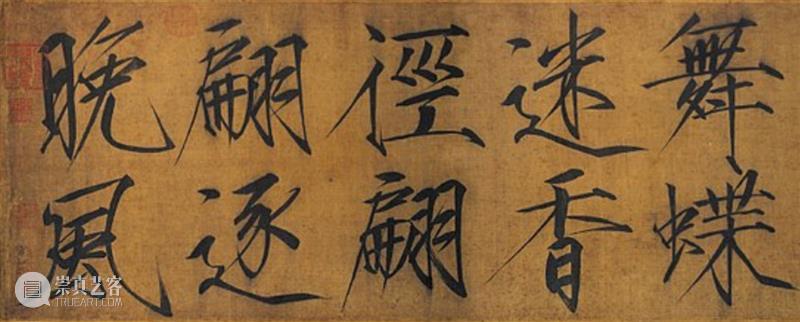 舞蝶
迷香
徑翩
翩逐
晚風
崇真艺客
TRUEART.COM